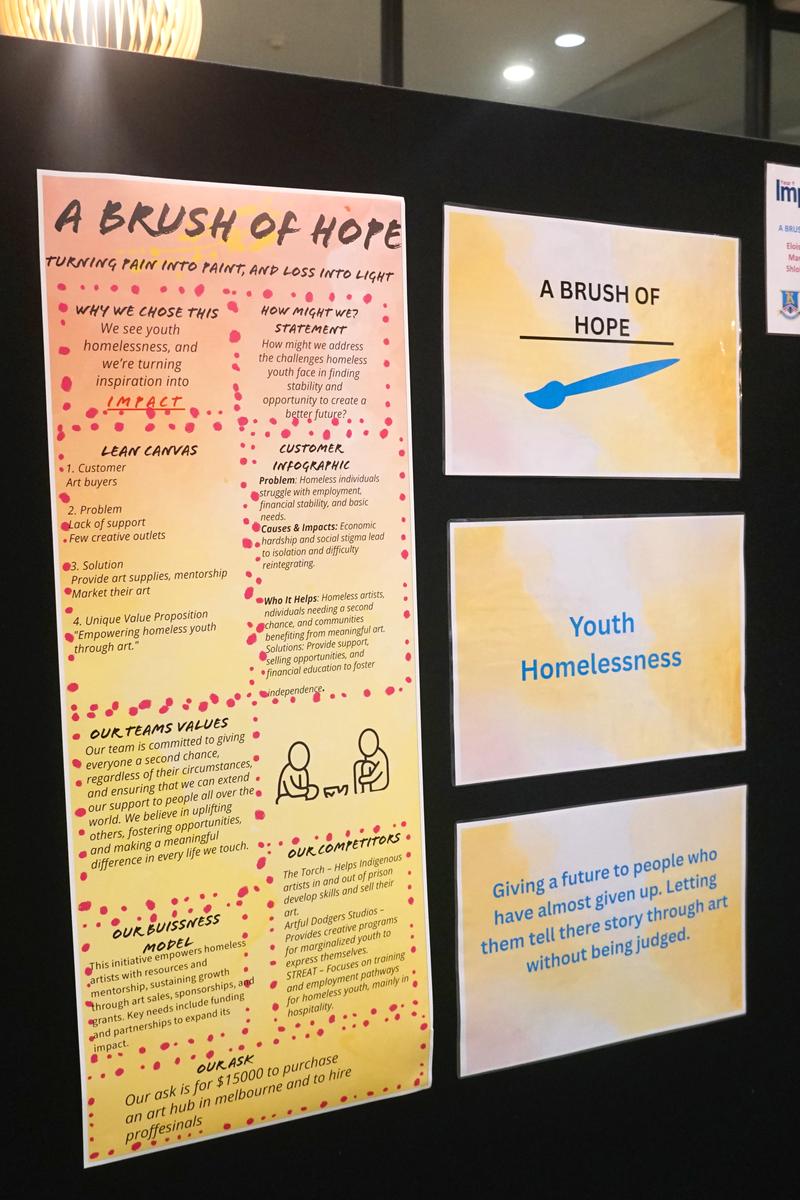 A BRUSH OF HOPE
TURNING PAIN INTO PAINT, AND LOSS INTO LIGHT
WHY WE CHOSE THIS
We see youth
homelessness, and
we're turning
inspiration into
IMPACT
HOW MIGHT WE?
STATEMENT
How might we address
the challenges homeless
youth face in finding
stability and
opportunity to create a
better future?
LEAN CANVAS
1. Customer
Art buyers
2. Problem
Lack of support
Few creative outlets
3. Solution
Provide art supplies, mentorship
Market their art
4. Unique Value Proposition
"Empowering homeless youth
through art."
CUSTOMER
INFOGRAPHIC
Problem: Homeless individuals
struggle with employment,
financial stability, and basic
needs.
Causes & Impacts: Economic
hardship and social stigma lead
to isolation and difficulty
reintegrating.
Who It Helps: Homeless artists,
ndividuals needing a second
chance, and communities
benefiting from meaningful art.
Solutions: Provide support,
selling opportunities, and
financial education to foster
independence.
OUR TEAMS VALUES
Our team is committed to giving
everyone a second chance,
regardless of their circumstances,
and ensuring that we can extend
our support to people all over the
world. We believe in uplifting
others, fostering opportunities,
and making a meaningful
difference in every life we touch.
OUR COMPETITORS
The Torch – Helps Indigenous
artists in and out of prison
develop skills and sell their
art.
Artful Dodgers Studios –
Provides creative programs
for marginalized youth to
express themselves.
STREAT – Focuses on training
and employment pathways
for homeless youth, mainly in
hospitality.
OUR BUISSNESS
MODEL
This initiative empowers homeless
artists with resources and
mentorship, sustaining growth
through art sales, sponsorships, and
grants. Key needs include funding
and partnerships to expand its
impact.
OUR ASK
Our ask is for $15000 to purchase
an art hub in melbourne and to hire
proffesinals
A BRUSH OF
HOPE
Youth
Homelessness
Giving a future to people who
have almost given up. Letting
them tell there story through art
without being judged.
Imp
A BRUS
Elois
Mar
Shlo